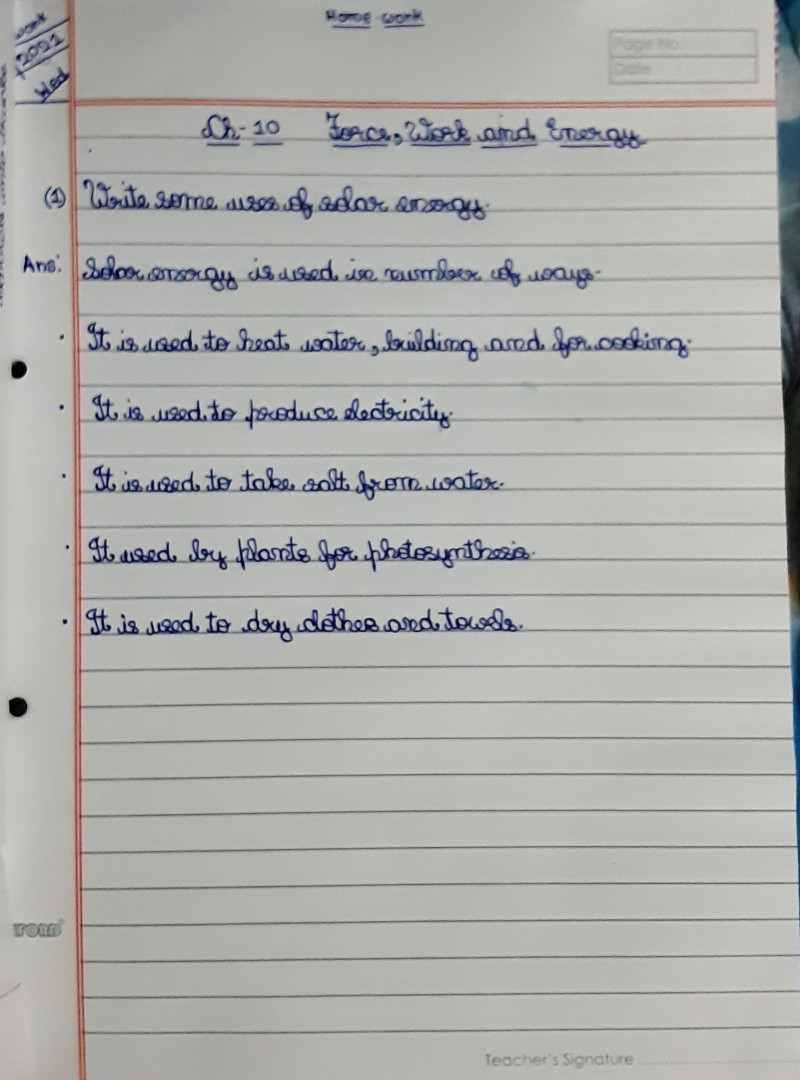 Home work
work
2021
Wed
Page No.
Date
Ch-10 Force, Work and Energy
(1) Write some uses of solar energy.
Ans: Solar energy is used in number of ways.
· It is used to heat water, building and for cooking.
· It is used to produce electricity.
· It is used to take salt from water.
· It used by plants for photosynthesis.
· It is used to dry clothes and towels.
Teacher's Signature